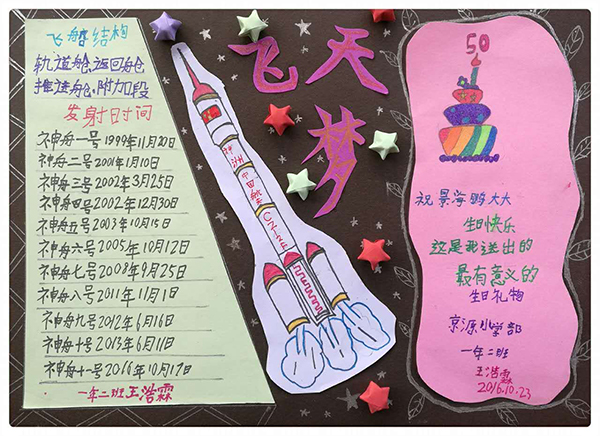 飞船结构
轨道舱、返回舱
推进舱、附加段
发射日时间
神舟一号1999年11月20日
神舟二号2001年1月10日
神舟三号2002年3月25日
神舟四号2002年12月30日
神舟五号2003年10月15日
神舟六号2005年10月12日
神舟七号2008年9月25日
神舟八号2011年11月1日
神舟九号2012年6月16日
神舟十号2013年6月11日
神舟十一号2016年10月17日
一年二班王浩霖
飞天
梦
神洲
中国航天
50
祝景海鹏大大
生日快乐
这是我送出的
最有意义的
生日礼物
京源小学部
一年二班
王浩霖
2016.10.23